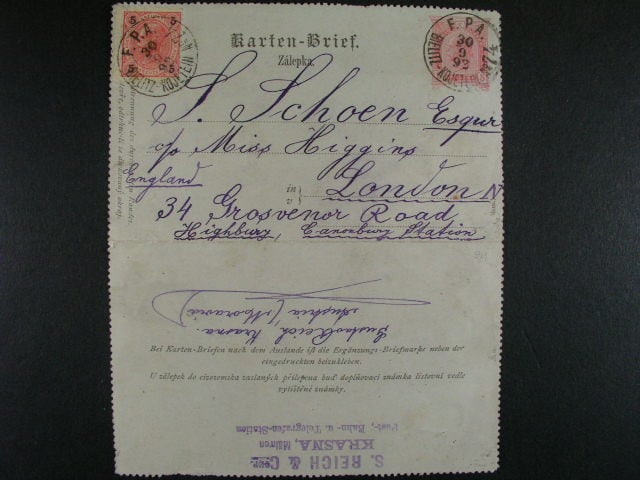 F. P. A.
30
BIELITZ-KOJETEIN
Karten-Brief.
Zálepka.
F. P. A.
30
9
93
BIELITZ-KOJETEIN
S. Schoen Esqur
c/o Miss Higgins
England
in
v
London N
34 Grosvenor Road
Highbury, Canonbury Station
Gustav Reich, Krasna.
Austria (Moravia)
Bei Karten-Briefen nach dem Auslande ist die Ergänzungs-Briefmarke neben der
eingedruckten beizukleben.
U zálepek do cizozemska zaslaných přilepena buď doplňovací známka listovní vedle
vytištěné známky.
S. REICH & Co
KRASNA, Mähren
Post-, Bahn- u. Telegrafen-Station